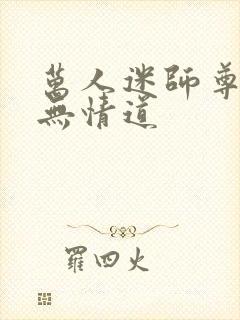 萬人迷師尊
無情道
羅四火